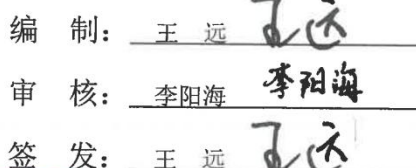 编 制： 王 远 王远
审 核： 李阳海 李阳海
签 发： 王 远 王远